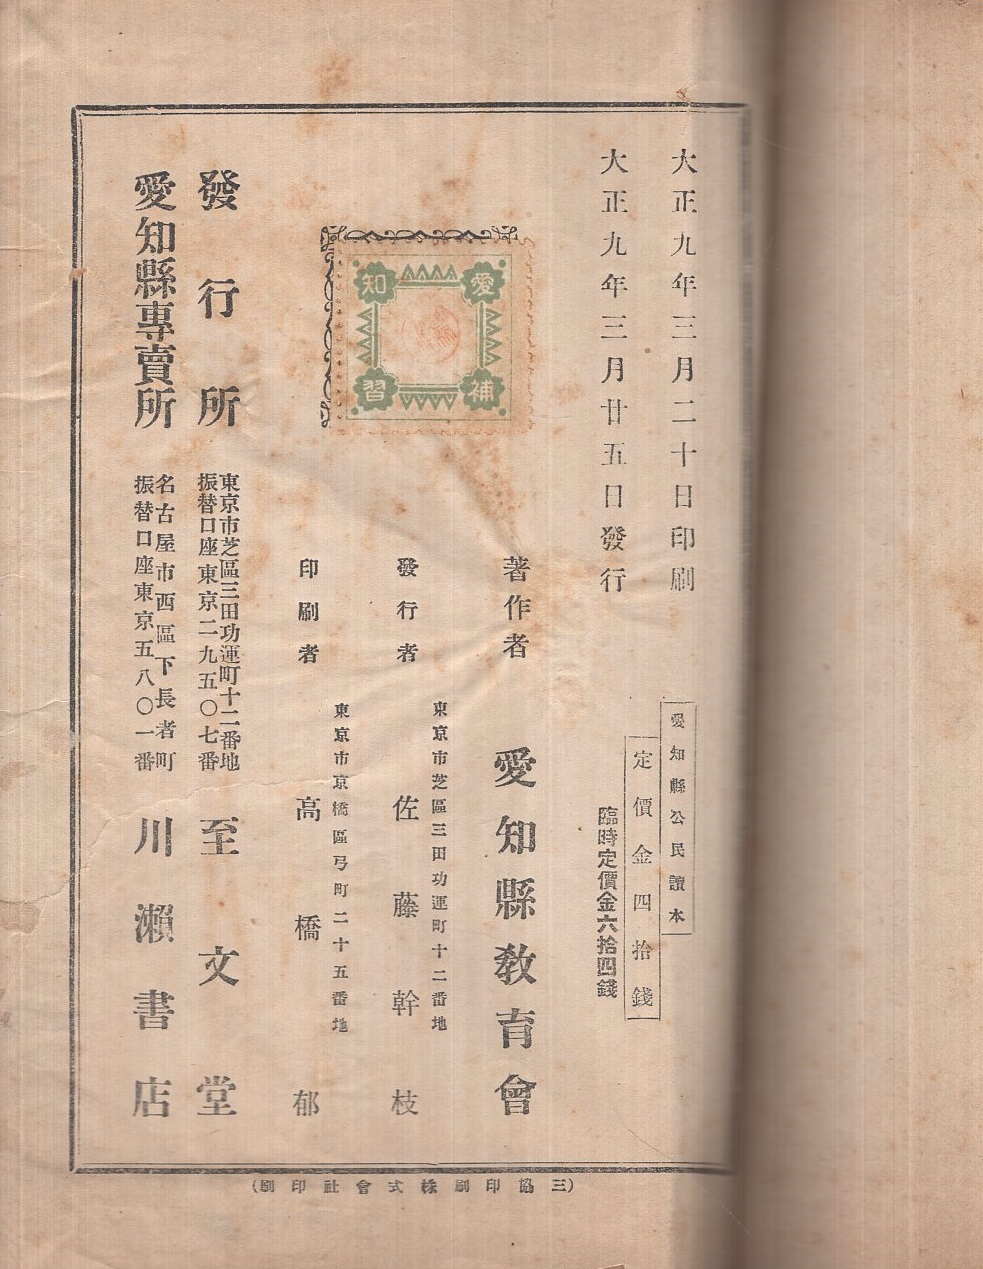 大正九年三月二十日印刷
大正九年三月廿五日發行
愛知縣公民讀本
定價金四拾錢
臨時定價金六拾四錢
著作者 愛知縣敎育會
東京市芝區三田功運町十二番地
發行者 佐藤幹枝
東京市京橋區弓町二十五番地
印刷者 高橋郁
愛知
補習
發行所 東京市芝區三田功運町十二番地 至文堂
振替口座東京二九五〇七番
愛知縣專賣所 名古屋市西區下長者町 川瀨書店
振替口座東京五八〇一番
(三協印刷株式會社印刷)